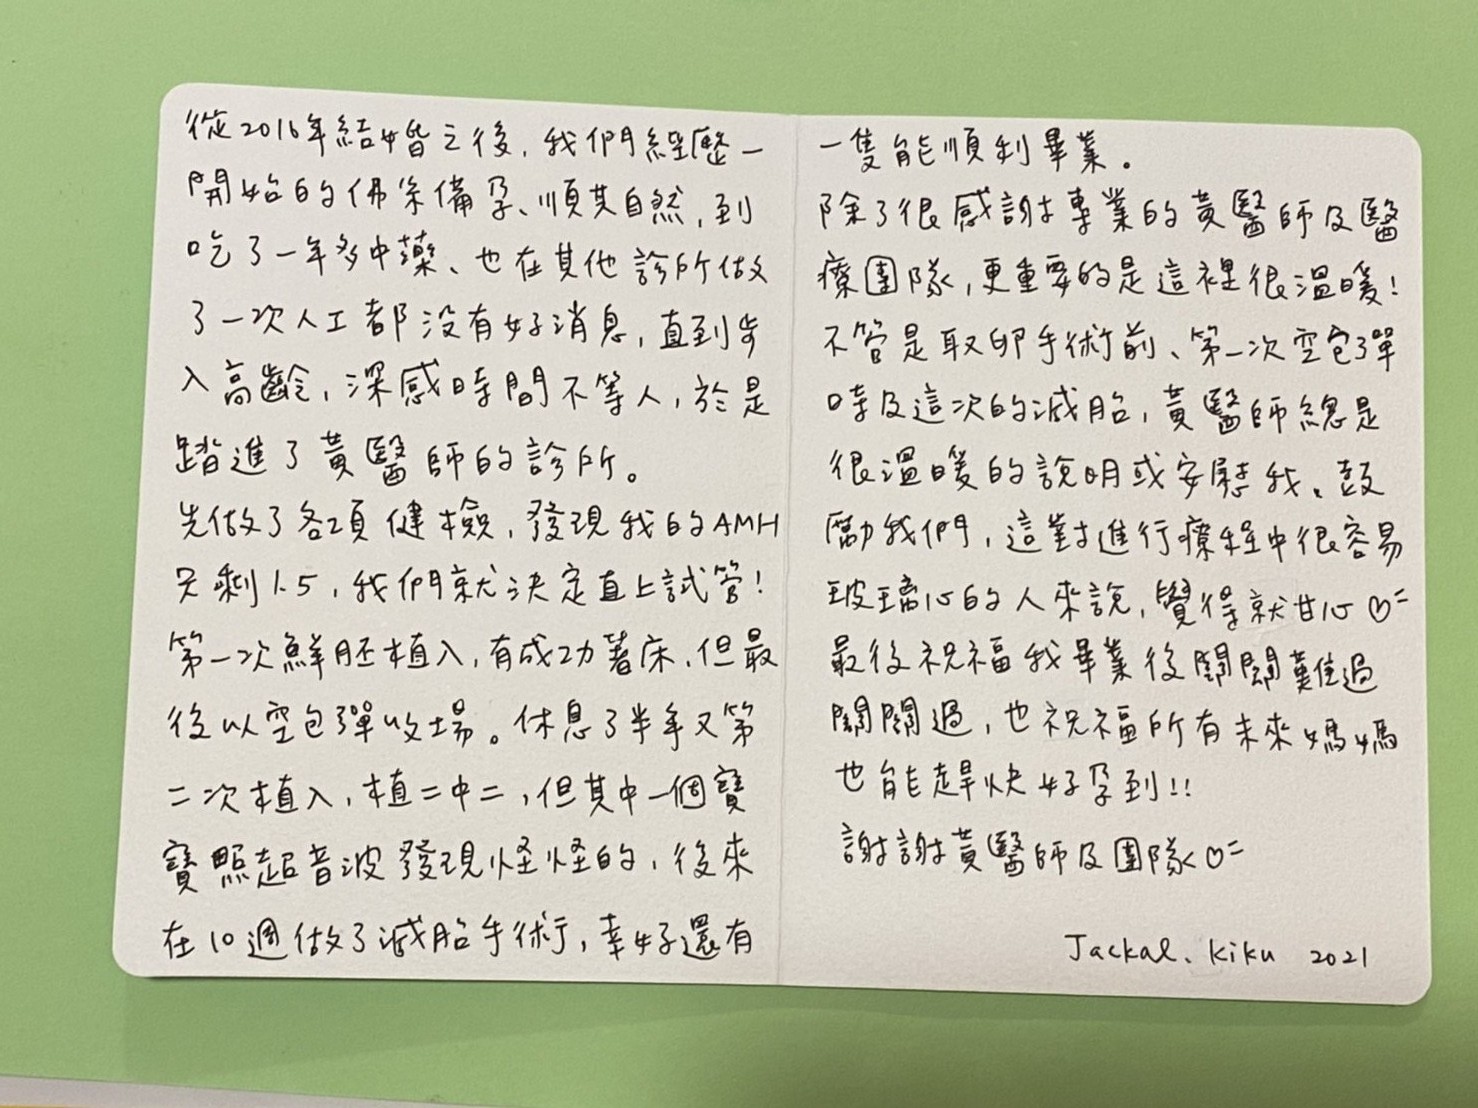 從2016年結婚之後,我們經歷一
開始的佛系備孕、順其自然,到
吃了一年多中藥、也在其他診所做
了一次人工都沒有好消息,直到步
入高齡,深感時間不等人,於是
踏進了黃醫師的診所。
先做了各項健檢,發現我的AMH
只剩1.5,我們就決定直上試管!
第一次鮮胚植入,有成功著床,但最
後以空包彈收場。休息了半年又第
二次植入,植二中二,但其中一個寶
寶照超音波發現怪怪的,後來
在10週做了減胎手術,幸好還有
一隻能順利畢業。
除了很感謝專業的黃醫師及醫
療團隊,更重要的是這裡很溫暖!
不管是取卵手術前、第一次空包彈
時及這次的減胎,黃醫師總是
很溫暖的說明或安慰我、鼓
勵我們,這對進行療程中很容易
玻璃心的人來說,覺得就甘心♡=
最後祝福我畢業後關關難過
關關過,也祝福所有未來媽媽
也能趕快好孕到!!
謝謝黃醫師及團隊♡=
Jackal、Kiku 2021